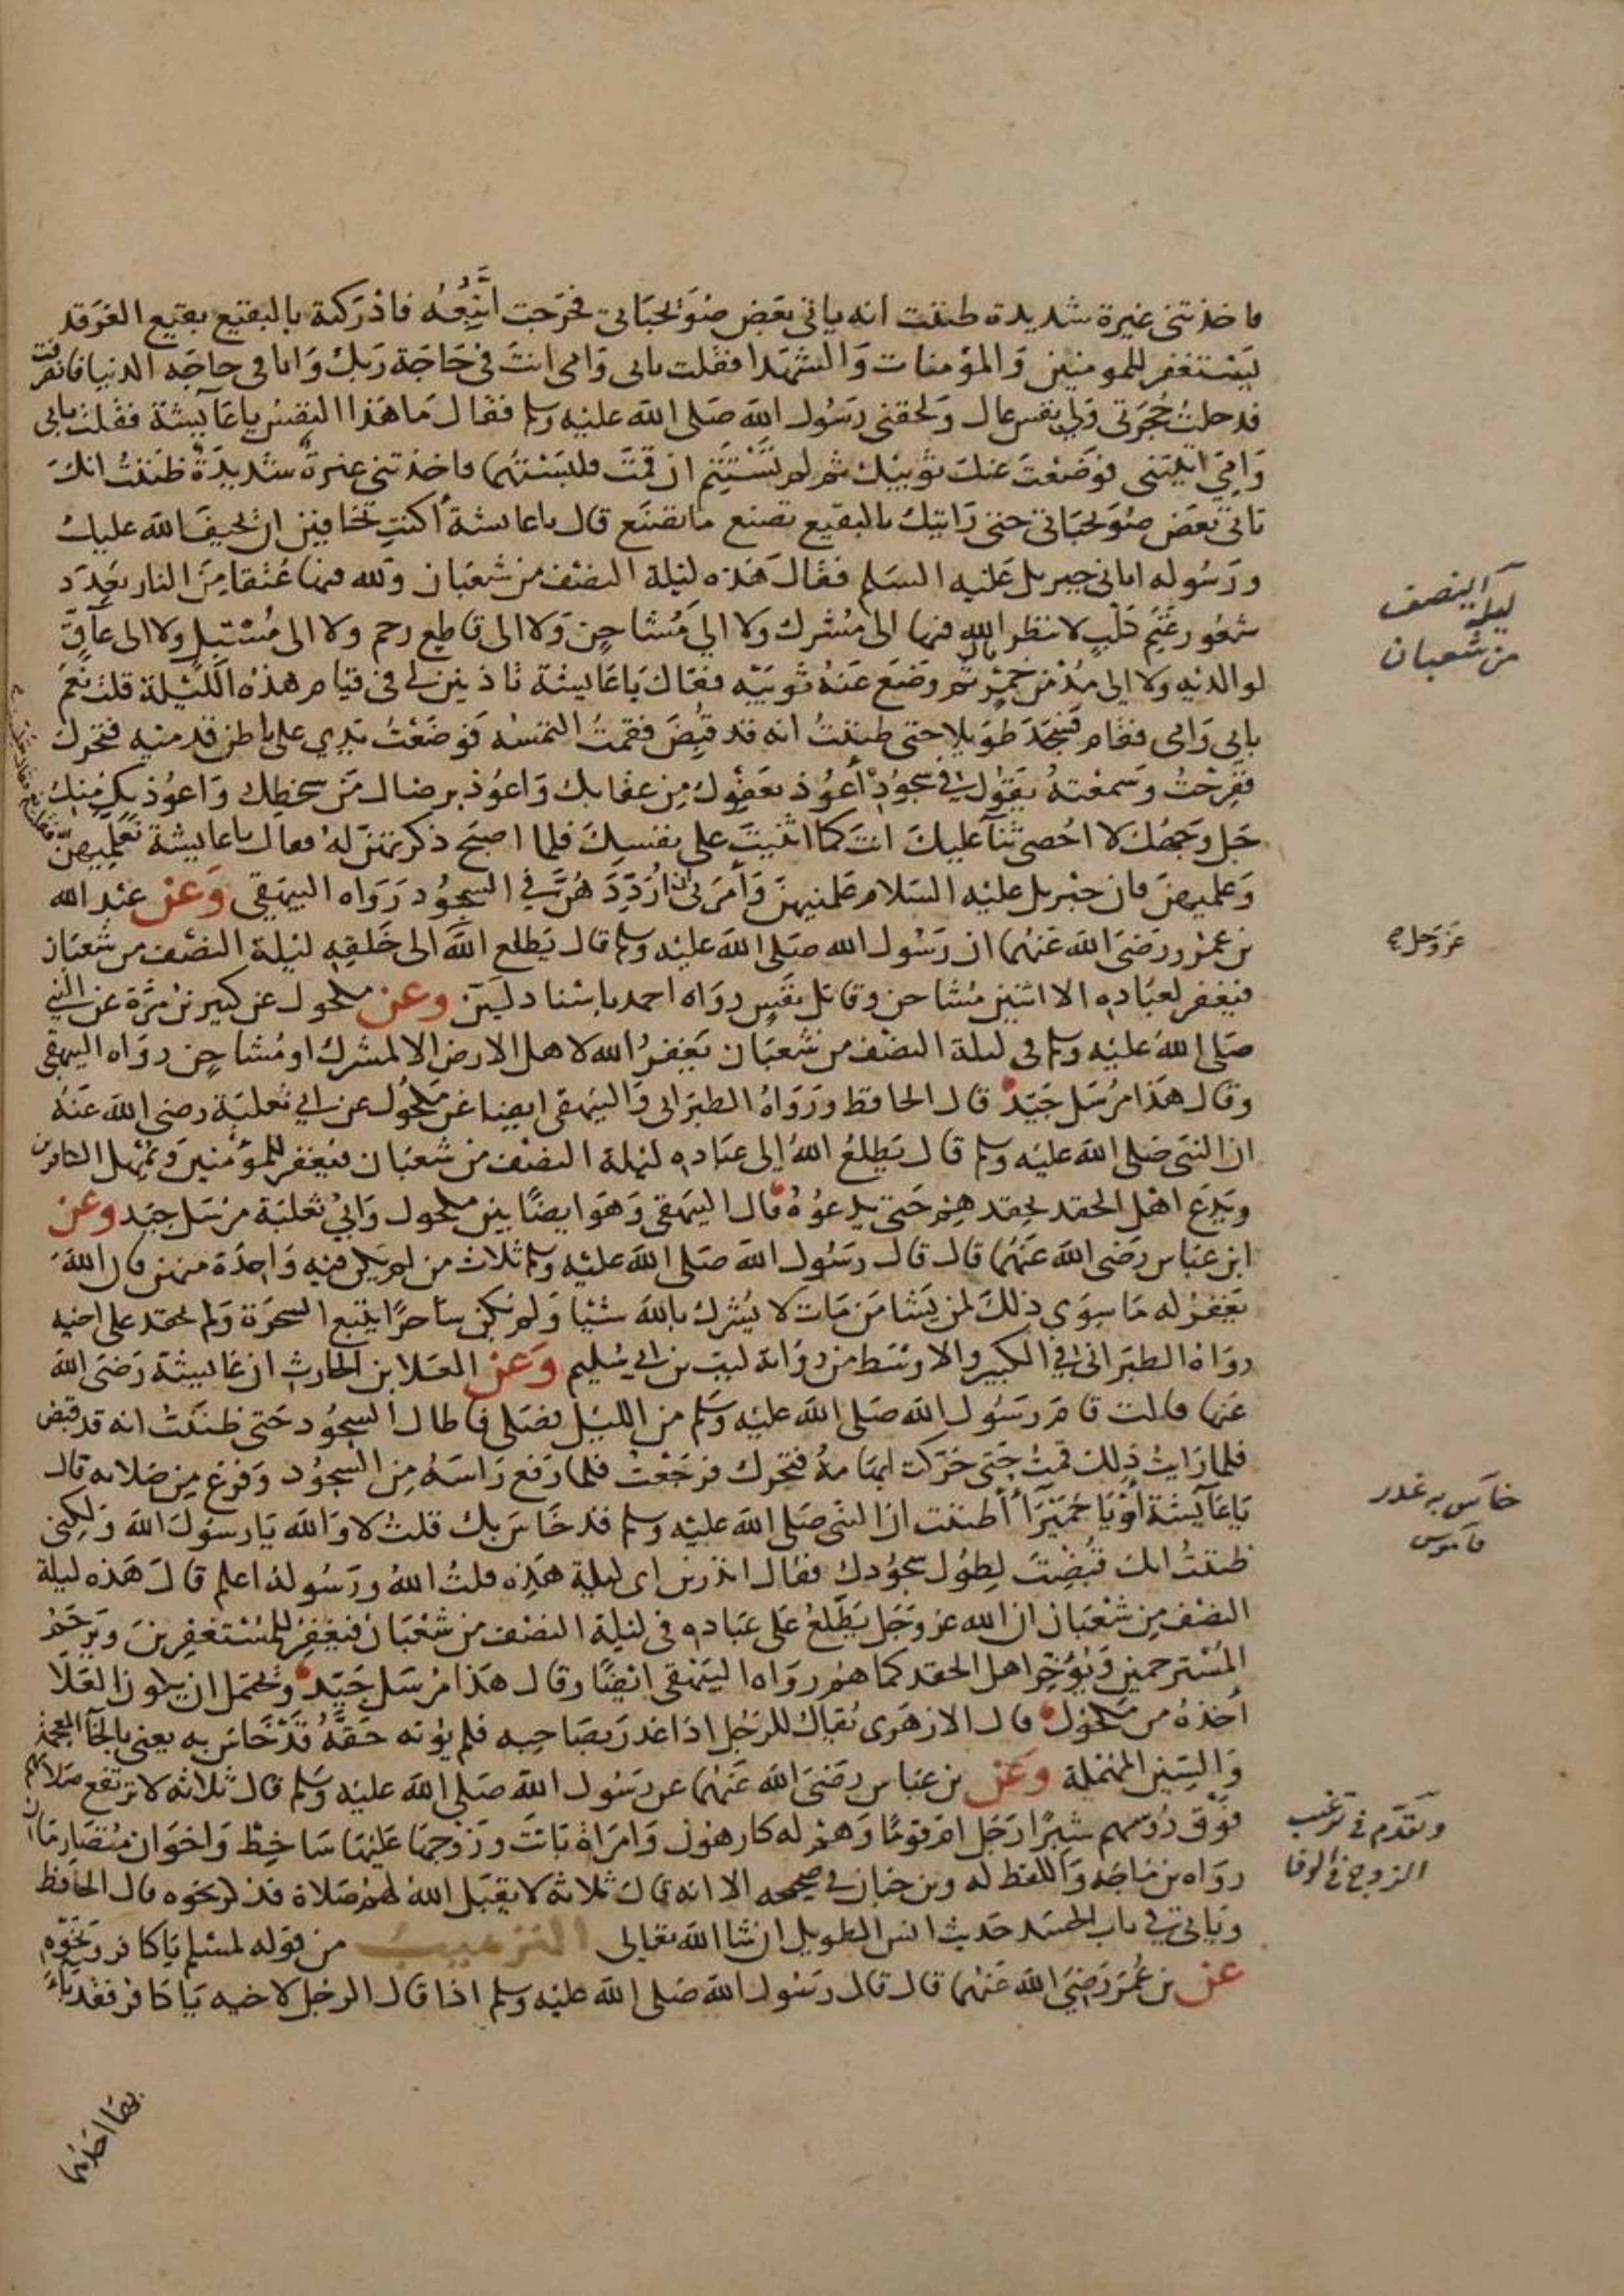 فاخذتني غيرة شديدة ظننت انه ياتي بعض صويحباتي فخرجت اتبعه فادركته بالبقيع بقيع الغرقد
يستغفر للمومنين والمؤمنات والشهدا فقلت بابي وامى انت في حاجة ربك وانا في حاجه الدنيا فانصرفت
فدخلت حجرتي ولي نفس عال ولحقني رسول الله صلى الله عليه وسلم فقال ما هذا النفس يا عآيشة فقلت بابي
وامي اتيتني فوضعت عنك ثوبيك ثم لم تستتم ان قمت فلبستهما فاخذتني غيرة شديدة ظننت انك
تاتي بعض صويحباتي حتى رايتك بالبقيع تصنع ما تصنع قال يا عايشة أكنت تخافين ان يحيف الله عليك
ورسوله اتاني جبريل عليه السلم فقال هذه ليلة النصف من شعبان ولله فيها عتقا من النار بعدد
شعور غنم كلب لا ينظر الله فيها الى مشرك ولا الي مشاحن ولا الى قاطع رحم ولا الى مسبل ولا الى عآق
لوالديه ولا الى مدمن خمر قال ثم وضع عنه ثوبيه فقال يا عايشة تاذنين لي في قيام هذه الليلة قلت نعم
بابي وامى فقام فسجد طويلا حتى ظننت انه قد قبض فقمت التمسه فوضعت يدي على باطن قدميه فتحرك
ففرحت وسمعته يقول في سجوده أعوذ بعفوك من عقابك واعوذ برضاك من سخطك واعوذ بك منك
جل وجهك لا احصي ثنآ عليك انت كما اثنيت على نفسك فلما اصبح ذكرتهن له فقال يا عايشة تعلميهن
وعلميهن فان جبريل عليه السلام علمنيهن وامرني ان ارددهن في السجود رواه البيهقي وعن عبد الله
بن عمرو رضى الله عنهما ان رسول الله صلى الله عليه وسلم قال يطلع الله الى خلقه ليلة النصف من شعبان
فيغفر لعباده الا اثنين مشاحن وقاتل نفس رواه احمد باسناد لين وعن مكحول عن كثير بن مرة عن النبي
صلى الله عليه وسلم في ليلة النصف من شعبان يغفر الله لاهل الارض الا لمشرك او مشاحن رواه البيهقي
وقال هذا مرسل جيد قال الحافظ ورواه الطبراني والبيهقي ايضا عن مكحول عن ابي ثعلبة رضى الله عنه
ان النبي صلى الله عليه وسلم قال يطلع الله الى عباده ليلة النصف من شعبان فيغفر للمؤمنين ويمهل الكافرين
ويدع اهل الحقد بحقدهم حتى يدعوه قال البيهقي وهو ايضا بين مكحول وابي ثعلبة مرسل جيد وعن
ابن عباس رضى الله عنهما قال قال رسول الله صلى الله عليه وسلم ثلاث من لم يكن فيه واحدة منهن فان الله
يغفر له ما سوى ذلك لمن يشا من مات لا يشرك بالله شيا ولم يكن ساحرا يتبع السحرة ولم يحقد على اخيه
رواه الطبراني في الكبير والاوسط من رواية ليث بن ابي سليم وعن العلا بن الحارث ان عايشة رضى الله
عنها قالت قام رسول الله صلى الله عليه وسلم من الليل فصلى فاطال السجود حتى ظننت انه قد قبض
فلما رايت ذلك قمت حتى حركت ابهامه فتحرك فرجعت فلما رفع راسه من السجود وفرغ من صلاته قال
يا عآيشة أو يا حميرآ أظننت ان النبي صلى الله عليه وسلم قد خاس بك قلت لا والله يا رسول الله ولكني
ظننت انك قبضت لطول سجودك فقال اتدرين اى ليلة هذه قلت الله ورسوله اعلم قال هذه ليلة
النصف من شعبان ان الله عز وجل يطلع على عباده في ليلة النصف من شعبان فيغفر للمستغفرين ويرحم
المسترحمين ويؤخر اهل الحقد كما هم رواه البيهقي ايضا وقال هذا مرسل جيد ويحتمل ان يكون العلا
أخذه من مكحول قال الازهرى يقال للرجل اذا غدر بصاحبه فلم يؤته حقه قد خاس به يعني بالخآ المعجمة
والسين المهملة وعن بن عباس رضى الله عنهما عن رسول الله صلى الله عليه وسلم قال ثلاثه لا ترتفع صلاتهم
فوق رؤسهم شبرا رجل ام قوما وهم له كارهون وامراة باتت وزوجها عليها ساخط واخوان متصارمان
رواه بن ماجه واللفظ له وبن حبان في صحيحه الا انه قال ثلاثه لا يقبل الله لهم صلاة فذكر نحوه قال الحافظ
وياتي في باب الحسد حديث انس الطويل ان شا الله تعالى الترهيب من قوله لمسلم يا كافر ونحوه
عن بن عمر رضى الله عنهما قال قال رسول الله صلى الله عليه وسلم اذا قال الرجل لاخيه يا كافر فقد باء
بها احدهما
ليلة النصف
من شعبان
عز وجل صح
خاس به غدر
قاموس
وتقدم في ترغيب
الزوج في الوفا